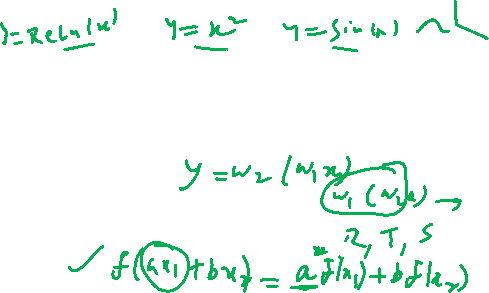 y=ReLu(x) y=x² y=sin(x)
y=w₂(w₁x)
w₁(w₂x) →
R, T, S
✓ f(ax₁+bx₂)=a f(x₁)+b f(x₂)